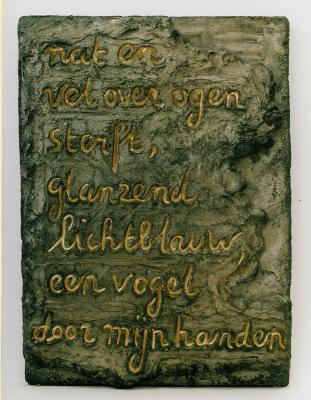 nat en
vel over ogen
sterft,
glanzend
lichtblauw,
een vogel
door mijn handen